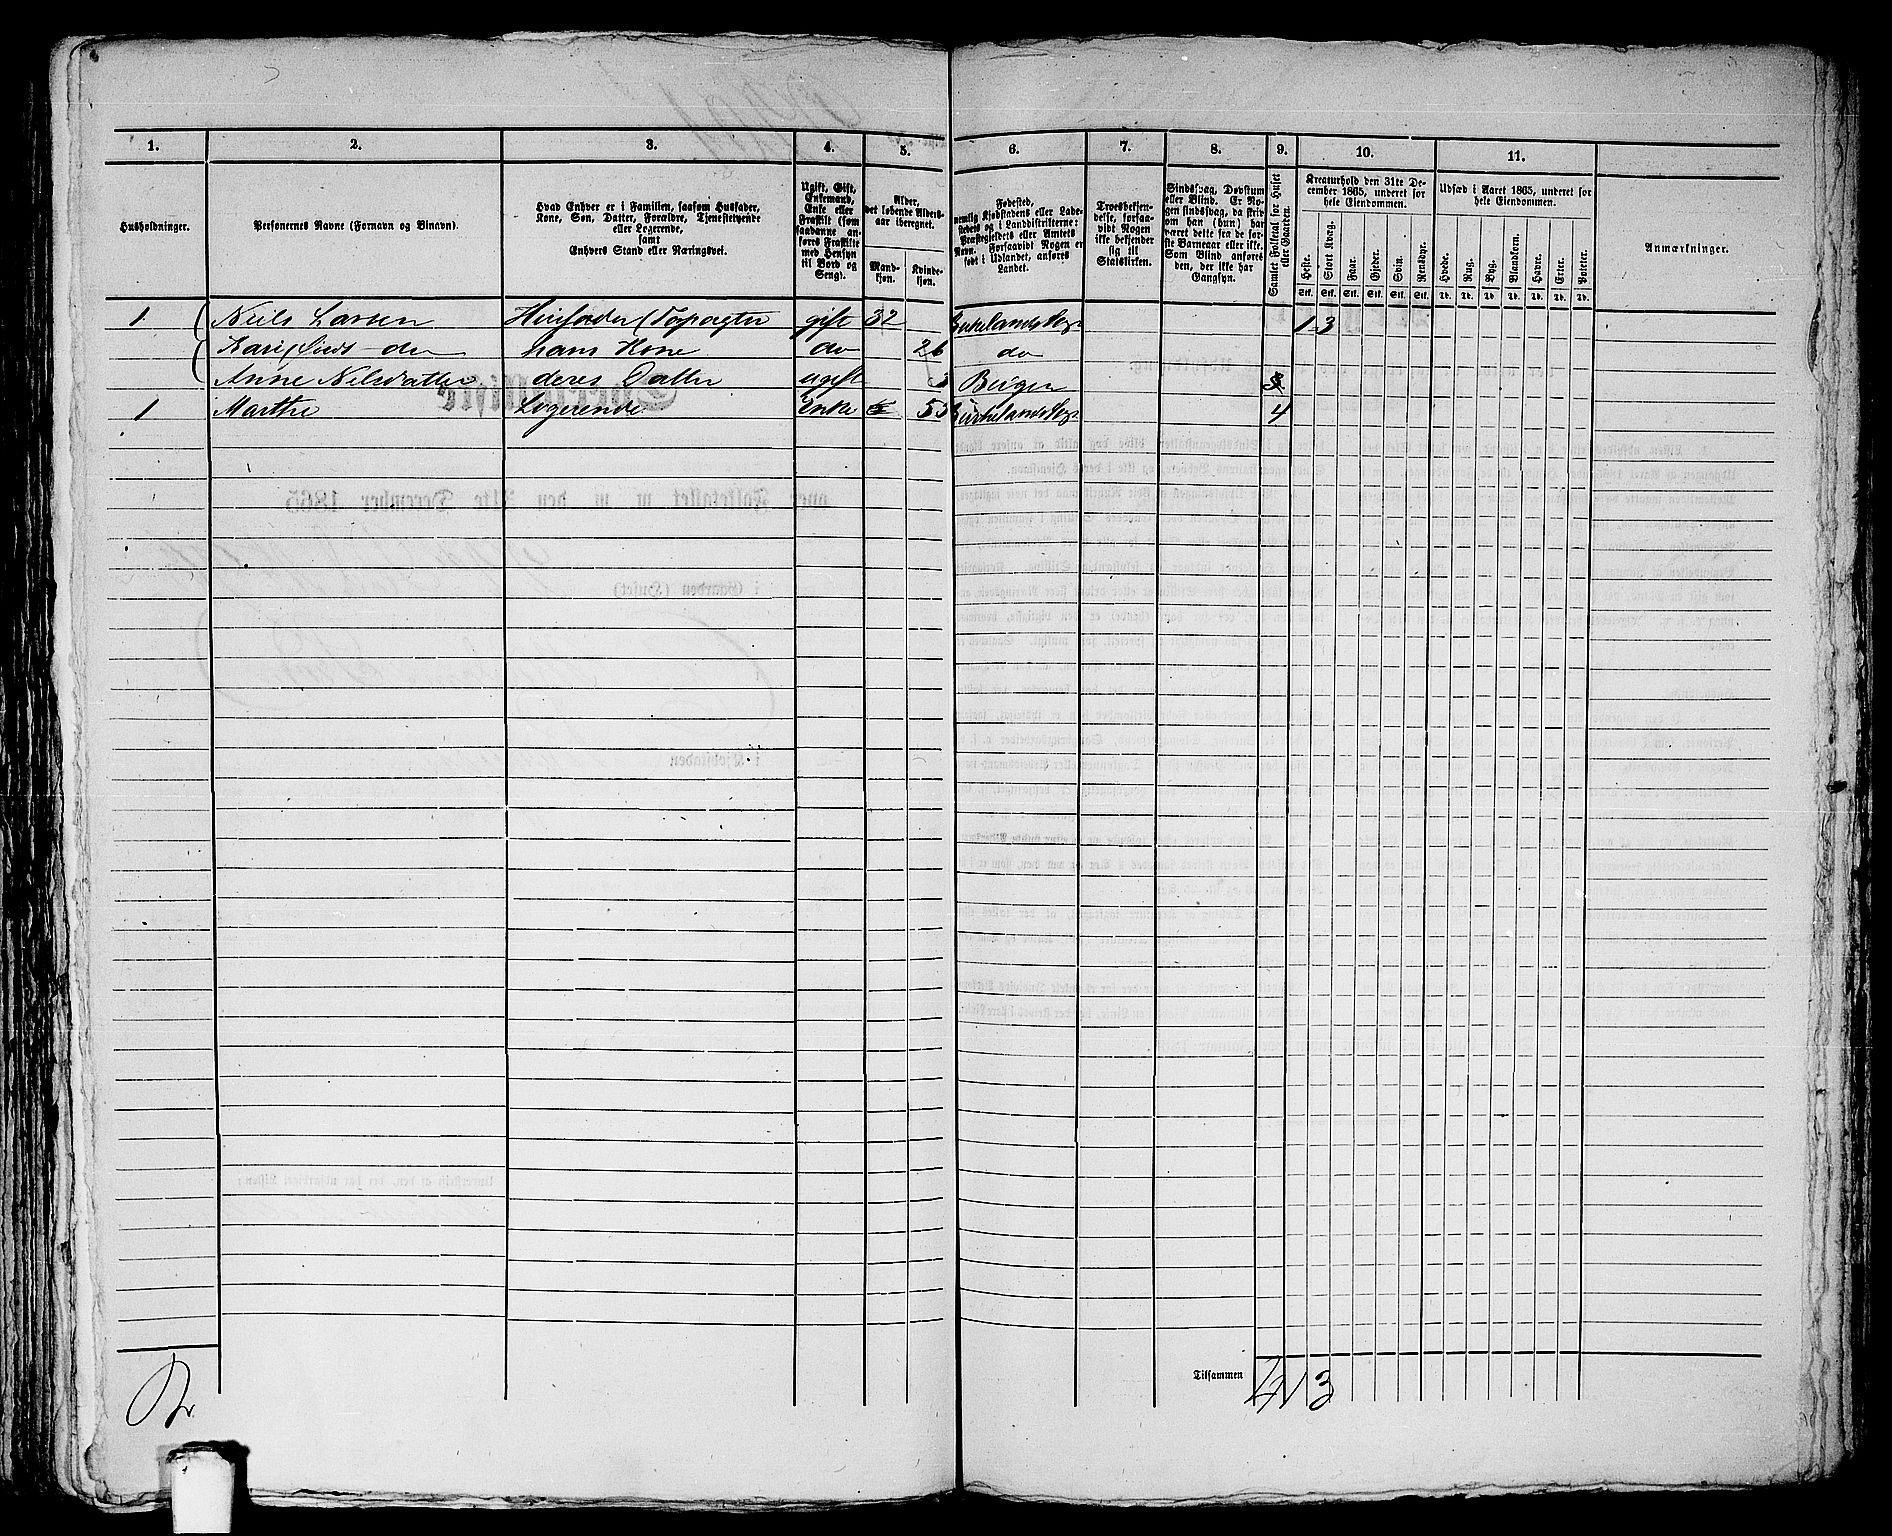 1. 2. 3. 4. 5. 6. 7. 8. 9. 10. 11.
Husholdninger.
Personernes Navne (Fornavn og Binavn).
Hvad Enhver er i Familien, saasom Husfader,
Kone, Søn, Datter, Forældre, Tjenestetyende
eller Logerende,
samt
Enhvers Stand eller Næringsvei.
Ugift, Gift,
Enkemand,
Enke eller
Fraskilt (som
saadanne an-
føres Fraskilte
med Hensyn
til Bord og
Seng).
Alder,
det løbende Alders-
aar iberegnet.
Mand-
kjøn.
Kvinde-
kjøn.
Fødested,
nemlig Kjøbstadens eller Lade-
stedets og i Landdistrikterne:
Præstegjeldets eller Amtets
Navn. Forsaavidt Nogen er
født i Udlandet, anføres
Landet.
Troesbekjen-
delse, forsaa-
vidt Nogen
ikke bekjender
sig til
Statskirken.
Sindssvag, Døvstum
eller Blind. Er No-
gen sindssvag, da skriv
om han (hun) har
været dette fra de før-
ste Barneaar eller ikke.
Som Blind anføres
den, der ikke har
Gangsyn.
Samlet Folketal for Huset
eller Gaarden.
Kreaturhold den 31te De-
cember 1865, underet for
hele Eiendommen.
Heste. Stort Kvæg. Faar. Gjeder. Svin. Rensdyr.
Stk. Stk. Stk. Stk. Stk. Stk.
Udsæd i Aaret 1865, underet for
hele Eiendommen.
Hvede. Rug. Byg. Blandkorn. Havre. Erter. Poteter.
Td. Td. Td. Td. Td. Td. Td.
Anmærkninger.
1 Neils Larsen Husfader gift 32 1 3
Kari do hans Kone do 26 do
Anne Nilsdatter deres Datter ugift 3 Bergen
1 Marthe Logerende Enke 55 4
Tilsammen 4 1 3